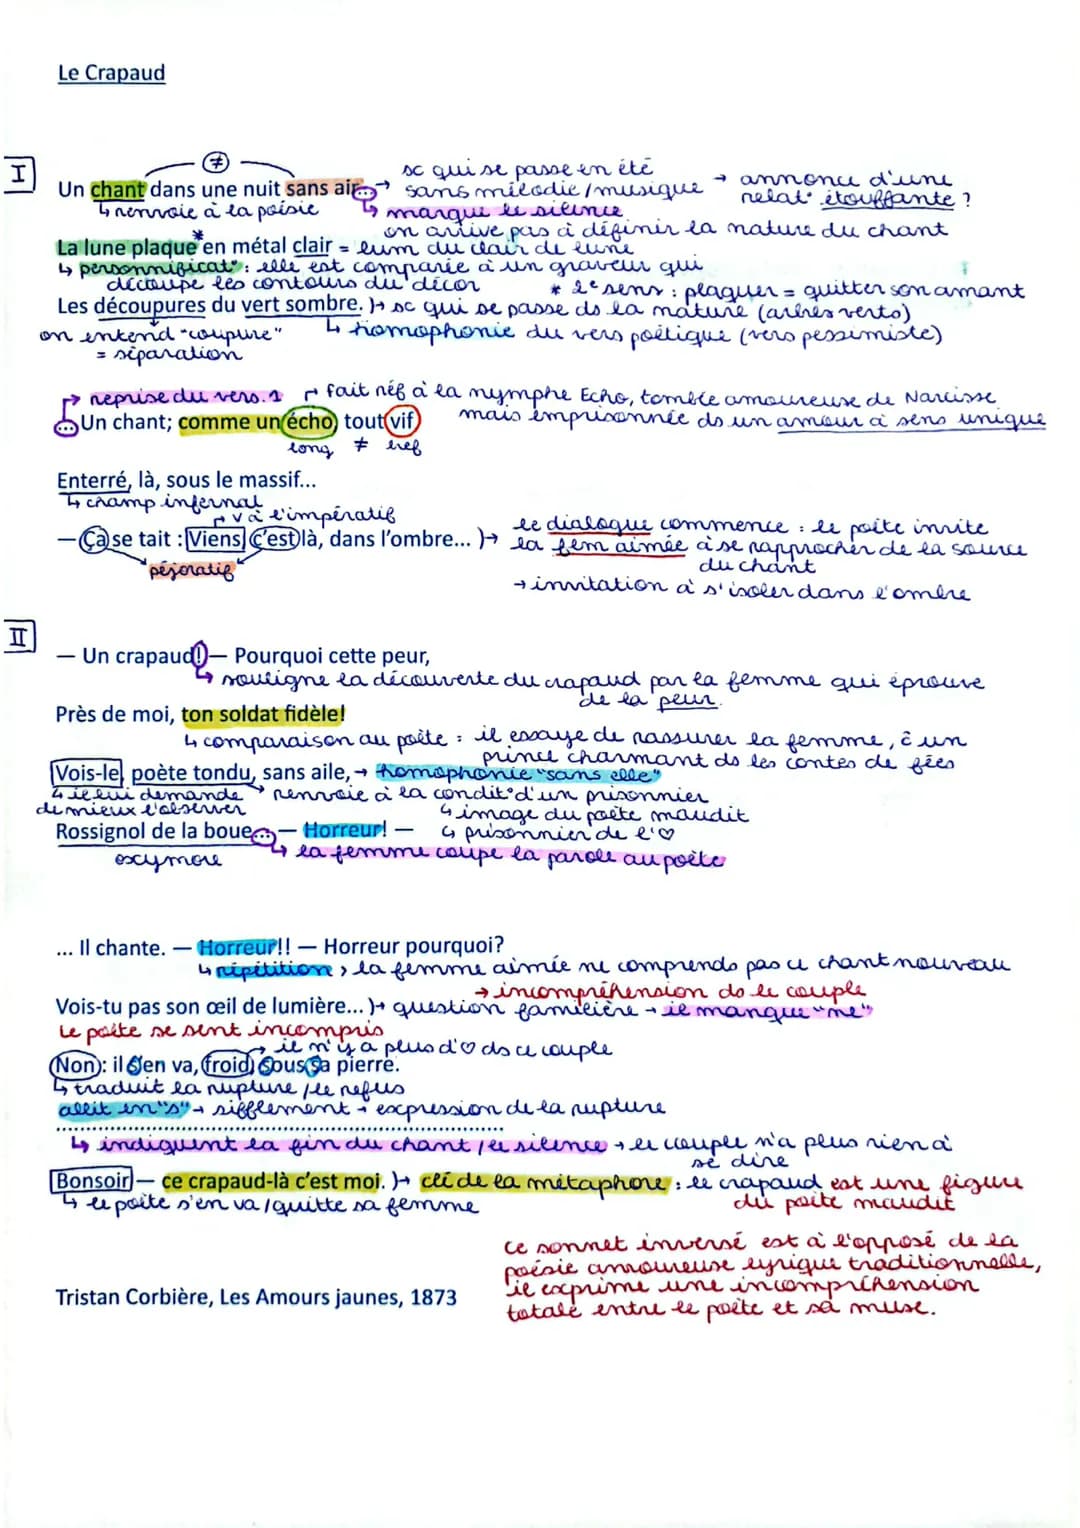 Le Crapaud
I
≠
sc qui se passe en été
Un chant dans une nuit sans air... → sans mélodie/musique → annonce d'une
relat° étouffante ?
↳ renvoie à la poésie
↳ marque le silence
on arrive pas à définir la nature du chant
La lune plaque* en métal clair = lum du clair de lune
↳ personnificat° : elle est comparée à un graveur qui
découpe les contours du décor
* 2e sens : plaquer = quitter son amant
Les découpures du vert sombre. }→ sc qui se passe ds la nature (arbres verts)
on entend "coupure"
= séparation
↳ homophonie du vers poétique (vers pessimiste)
→ reprise du vers. 1
→ fait réf à la nymphe Echo, tombée amoureuse de Narcisse
... Un chant; comme un écho, tout vif
mais emprisonnée ds un amour à sens unique
long ≠ bref
Enterré, là, sous le massif...
↳ champ infernal
→ v à l'impératif
— Ça se tait : Viens, c'est là, dans l'ombre... }→ le dialogue commence : le poète invite
la fem aimée à se rapprocher de la source
du chant
péjoratif
→ invitation à s'isoler dans l'ombre
II
— Un crapaud! — Pourquoi cette peur,
↳ souligne la découverte du crapaud par la femme qui éprouve
de la peur.
Près de moi, ton soldat fidèle!
↳ comparaison au poète : il essaye de rassurer la femme, c̄ un
prince charmant ds les contes de fées
Vois-le, poète tondu, sans aile, → homophonie "sans elle"
↳ il lui demande
de mieux l'observer
→ renvoie à la condit° d'un prisonnier
↳ image du poète maudit
Rossignol de la boue... — Horreur! —
↳ prisonnier de l'♡
oxymore
↳ la femme coupe la parole au poète
... Il chante. — Horreur!! — Horreur pourquoi?
↳ répétition, la femme aimée ne comprends pas ce chant nouveau
→ incompréhension ds le couple
Vois-tu pas son œil de lumière... }→ question familière → il manque "ne"
Le poète se sent incompris
→ il n'y a plus d'♡ ds ce couple
Non : il s'en va, froid, sous sa pierre.
↳ traduit la rupture / le refus
allit en "s" → sifflement → expression de la rupture
......................................................................
↳ indiquent la fin du chant / le silence → le couple n'a plus rien à
se dire
Bonsoir — ce crapaud-là c'est moi. }→ clé de la métaphore : le crapaud est une figure
du poète maudit
↳ le poète s'en va / quitte sa femme
ce sonnet inversé est à l'opposé de la
poésie amoureuse lyrique traditionnelle,
il exprime une incompréhension
totale entre le poète et sa muse.
Tristan Corbière, Les Amours jaunes, 1873